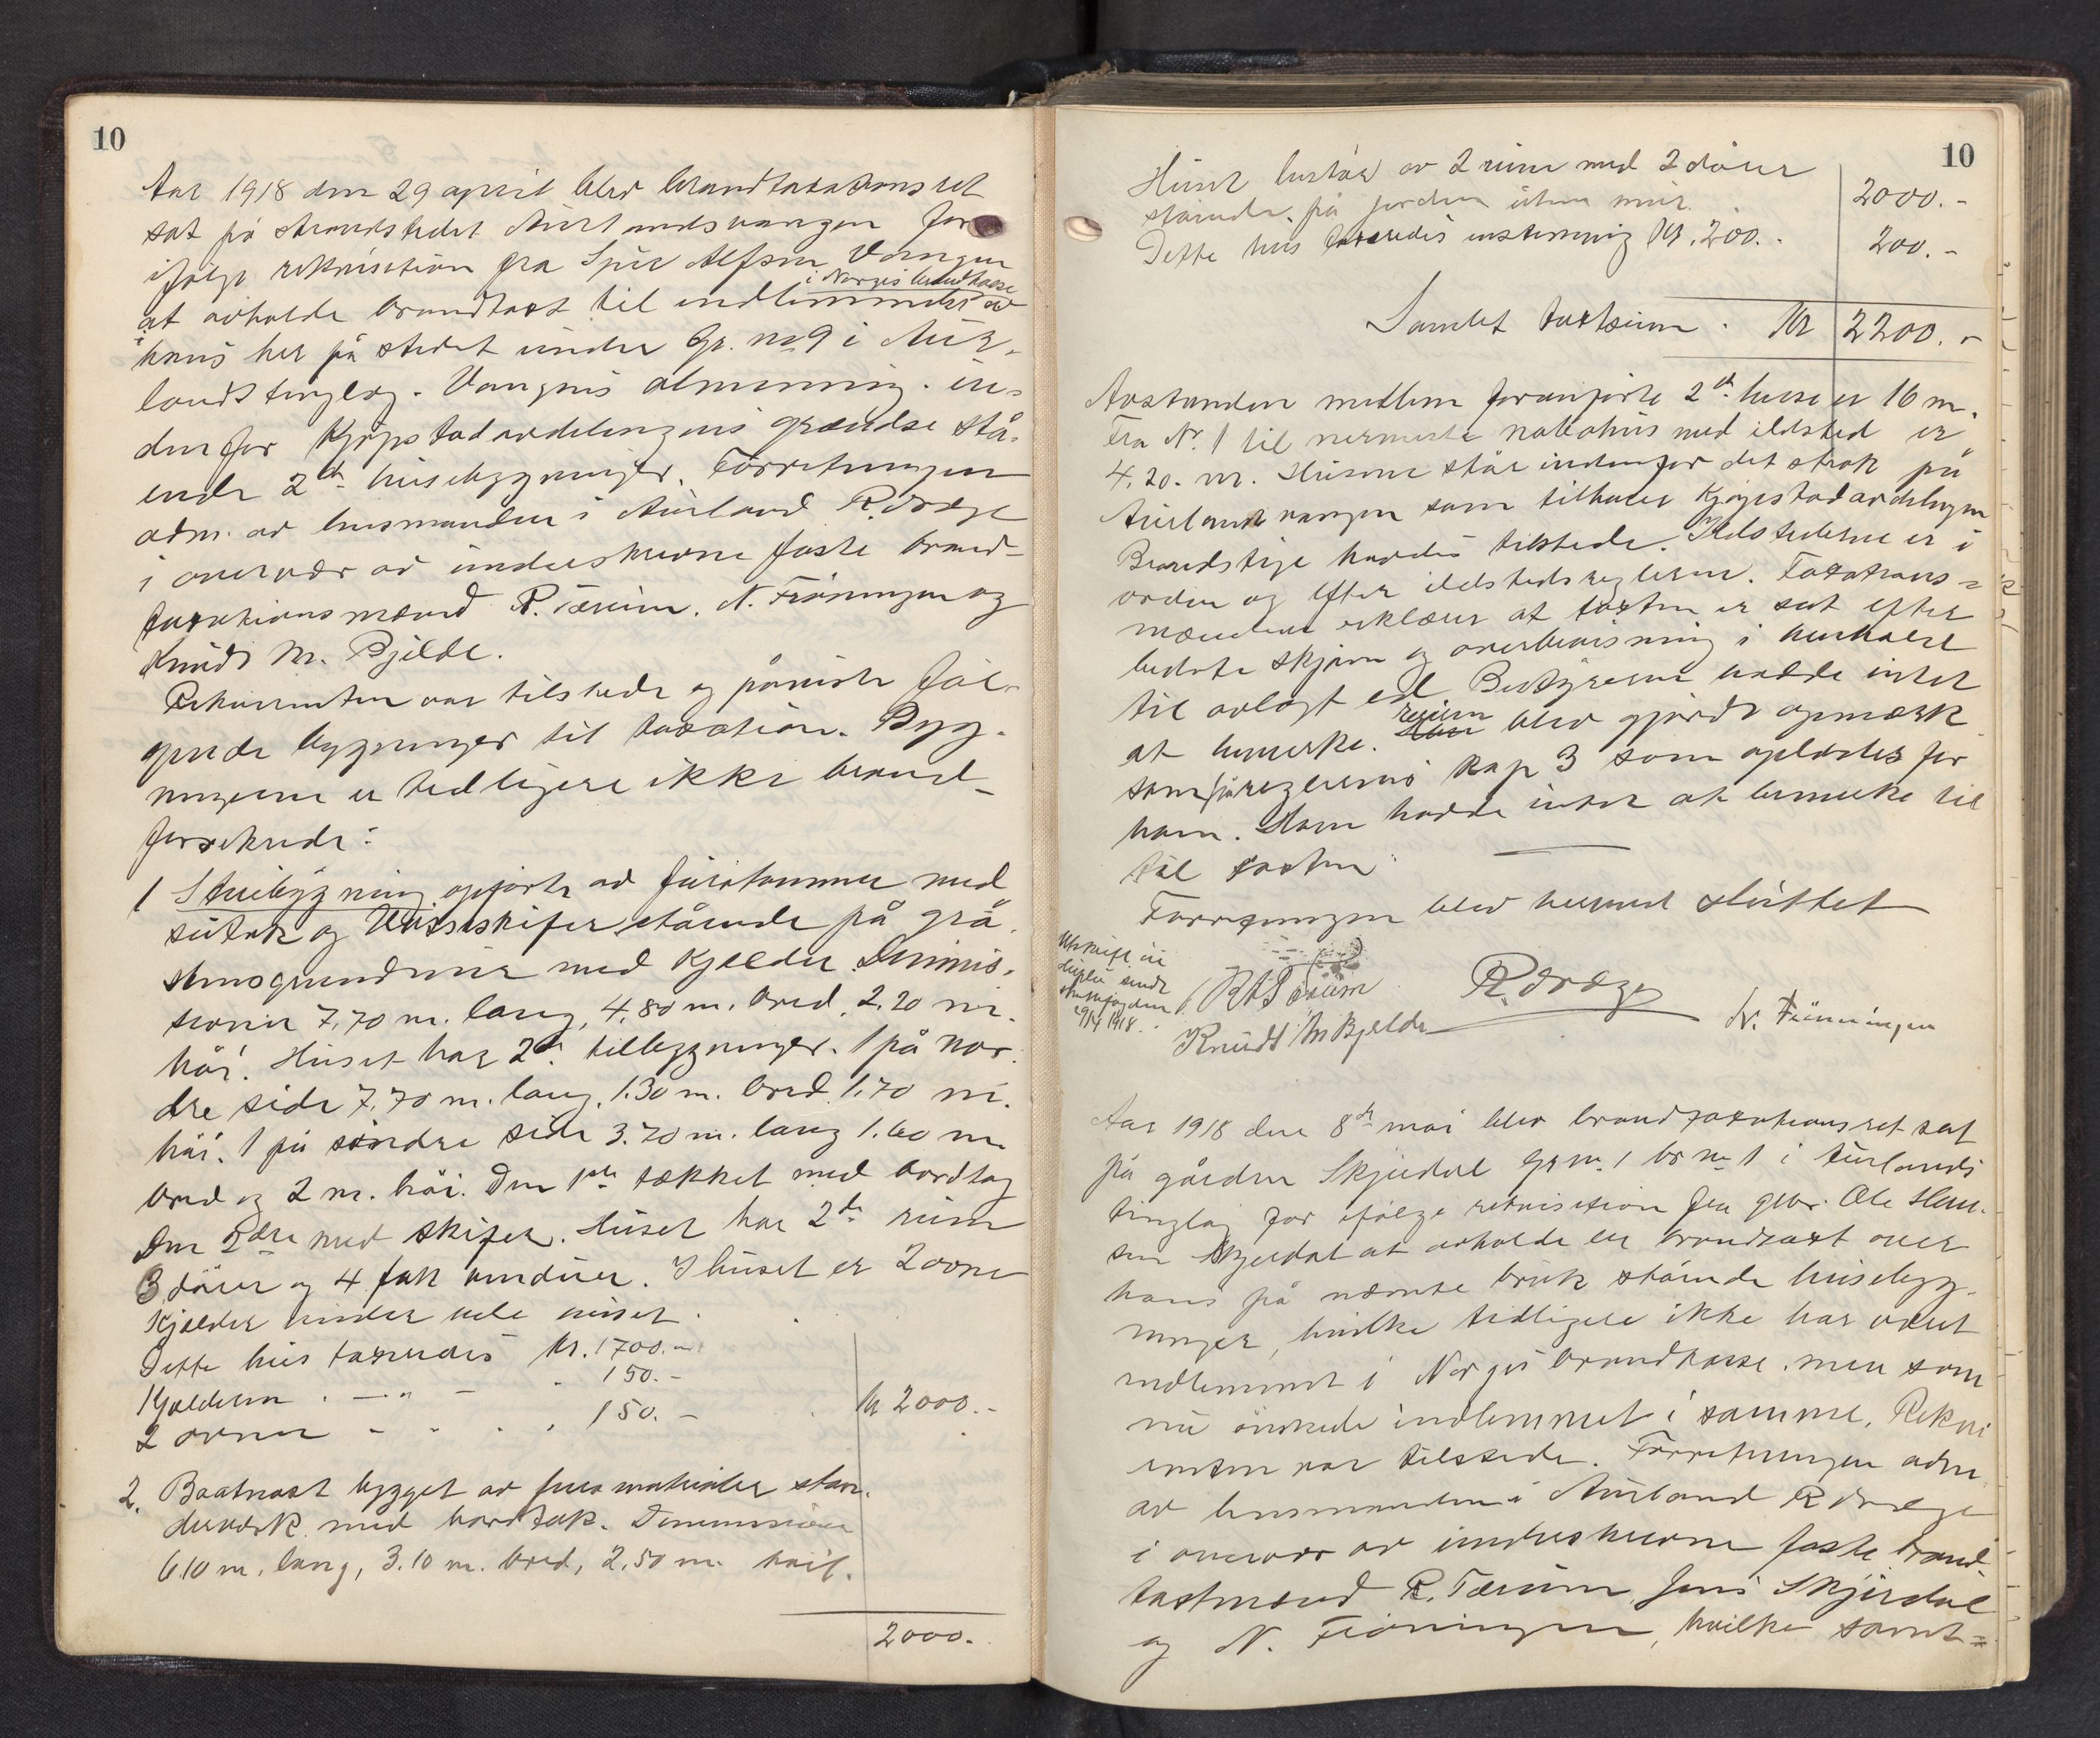 10
Aar 1918 den 29 april blev brandtaxationsret
sat på strandstedet Aurlandsvangen for
ifølge rekvisition fra Sjur Alfsen Vangen
i Norges brandkasse
at avholde brandtaxt til indlemmelse av
hans her på stedet under Gr. no 9 i Aur-
lands tinglag. Vangens almenning. in-
den for Kjøpstadavdelingens grændse stå-
ende 2de husebygninger. Forretningen
adm. av lensmanden i Aurland R. Dræge
i overvær av underskrevne faste brand-
taxationsmænd R. Tærum, N. Frøningen og
Knudt M. Bjelde.
Rekvirenten var tilstede og påviste føl-
gende bygninger til taxation. Byg-
ningerne er tidligere ikke brand-
forsikrede:
1 Stuebygning opførte av furutømmer med
sutak og Vossskifer stående på grå-
stensgrundmur med kjelder. Dimmis-
sioner 7,70 m. lang, 4,80 m. bred, 2,20 m.
høi. Huset har 2de tilbygninger. 1 på nor-
dre side 7,70 m. lang, 1.30 m. bred 1.70 m.
høi. 1 på søndre side 3.70 m. lang 1.60 m
bred og 2 m. høi. Den 1ste tækket med bordtag
Den 2den med skifer. Huset har 2de rum
3 dører og 4 fak vinduer. I huset er 2 ovne
Kjelder under hele huset.
Dette hus taxeredes Kr. 1700.-
Kjelderen . — " — . 150.-
2 ovner - - . . 150.- Kr 2000.-
2. Baatnøst bygget av furumaterialer stan-
derverk med bordtak. Dimmensioner
6.10 m. lang, 3.10 m. bred, 2,50 m. høit.
2000.
10
Huset består av 2 rum med 2 dører 2000.-
stående på jorden uten mur.
Dette hus taxeredes enstemmig Kr. 200.- 200.-
Samlet taxtsum . Kr 2200.-
Avstanden mellem foranførte 2de huse er 16 m.
Fra Nr. 1 til nermeste nabohus med ildsted er
4,20. m. Husene står indenfor det strøk på
Aurlandsvangen som tilhører Kjøpstadavdelingen
Brandstige havdes tilstede. Ildstederne er i
orden og efter ildstedsreglerne. Taxations-
mændene erklærer at taxten er sat efter
bedste skjøn og overbevisning i henhold
til avlagt ed. Bestyreren hadde intet
at bemerke. Rekvirn blev gjordt opmærk
som på reglernes kap 3 som oplæstes for
ham. Ham hadde intet at bemerke til
til taxten.
Forretningen blev hermed sluttet
Utskrift in
duplo sendt
29/4 1918.
R. Tærum R. Dræge N. Frøningen
Knudt M Bjelde
Aar 1918 den 8de mai blev brandtaxationsret sat
på gården Skjerdal Gr no. 1 br no 1 i Aurlands
tinglag for ifølge rekvisition fra gbr. Ole Han-
sen Skjerdal at avholde en brandtaxt over
hans på nævnte bruk stående husebyg-
ninger, hvilke tidligere ikke har været
indlemmet i Norges brandkasse. men som
nu ønskede indlemmet i samme. Rekvi
renten var tilstede. Forretningen adm.
av lensmanden i Aurland R Dræge
i overvær av underskrevne faste brand-
taxtmænd R. Tærum, Jens Skjerdal
og N. Frøningen, hvilke samt-